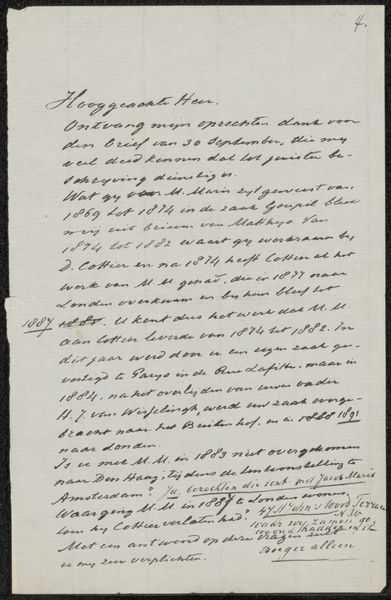 4.
Hooggeachte Heer.
Ontvang mijn oprechten dank voor
den brief van 30 September, die mij
veel deed kennen dat tot juister be-
schrijving dienstig is.
Wat gij voor M. Maris zijt geweest van
1869 tot 1874 in de zaak Goupil bleek
mij uit brieven van Matthijs. Van
1874 tot 1882 waart gij werkzaam bij
D. Cottier en na 1874 heeft Cottier al het
werk van M.M. gehad, die in 1877 naar
Londen overkwam en bij hem bleef tot
1887 1888. U kent dus het werk dat M.M.
aan Cottier leverde van 1874 tot 1882. In
dit jaar werd door u een eigen zaak ge-
vestigd te Parijs in de Rue Lafitte, maar in
1884, na het overlijden van uwen vader
H. J. van Wisselingh, werd uw zaak overge-
bracht naar het Buitenhof, en in 1888 1891
naar Londen.
Is u met M.M. in 1883 niet overgekomen
naar Den Haag, tijdens de tentoonstelling te
Amsterdam? Ja, bezochten die tent. met Jacob Maris
Waar ging M.M. in 1887 te Londen wonen,
toen hij Cottier verlaten had? 47 Terrace
N.W.
waar wij zamen ge
woond hadden en
Met een antwoord op deze vragen zult
u mij zeer verplichten. vroeger alleen